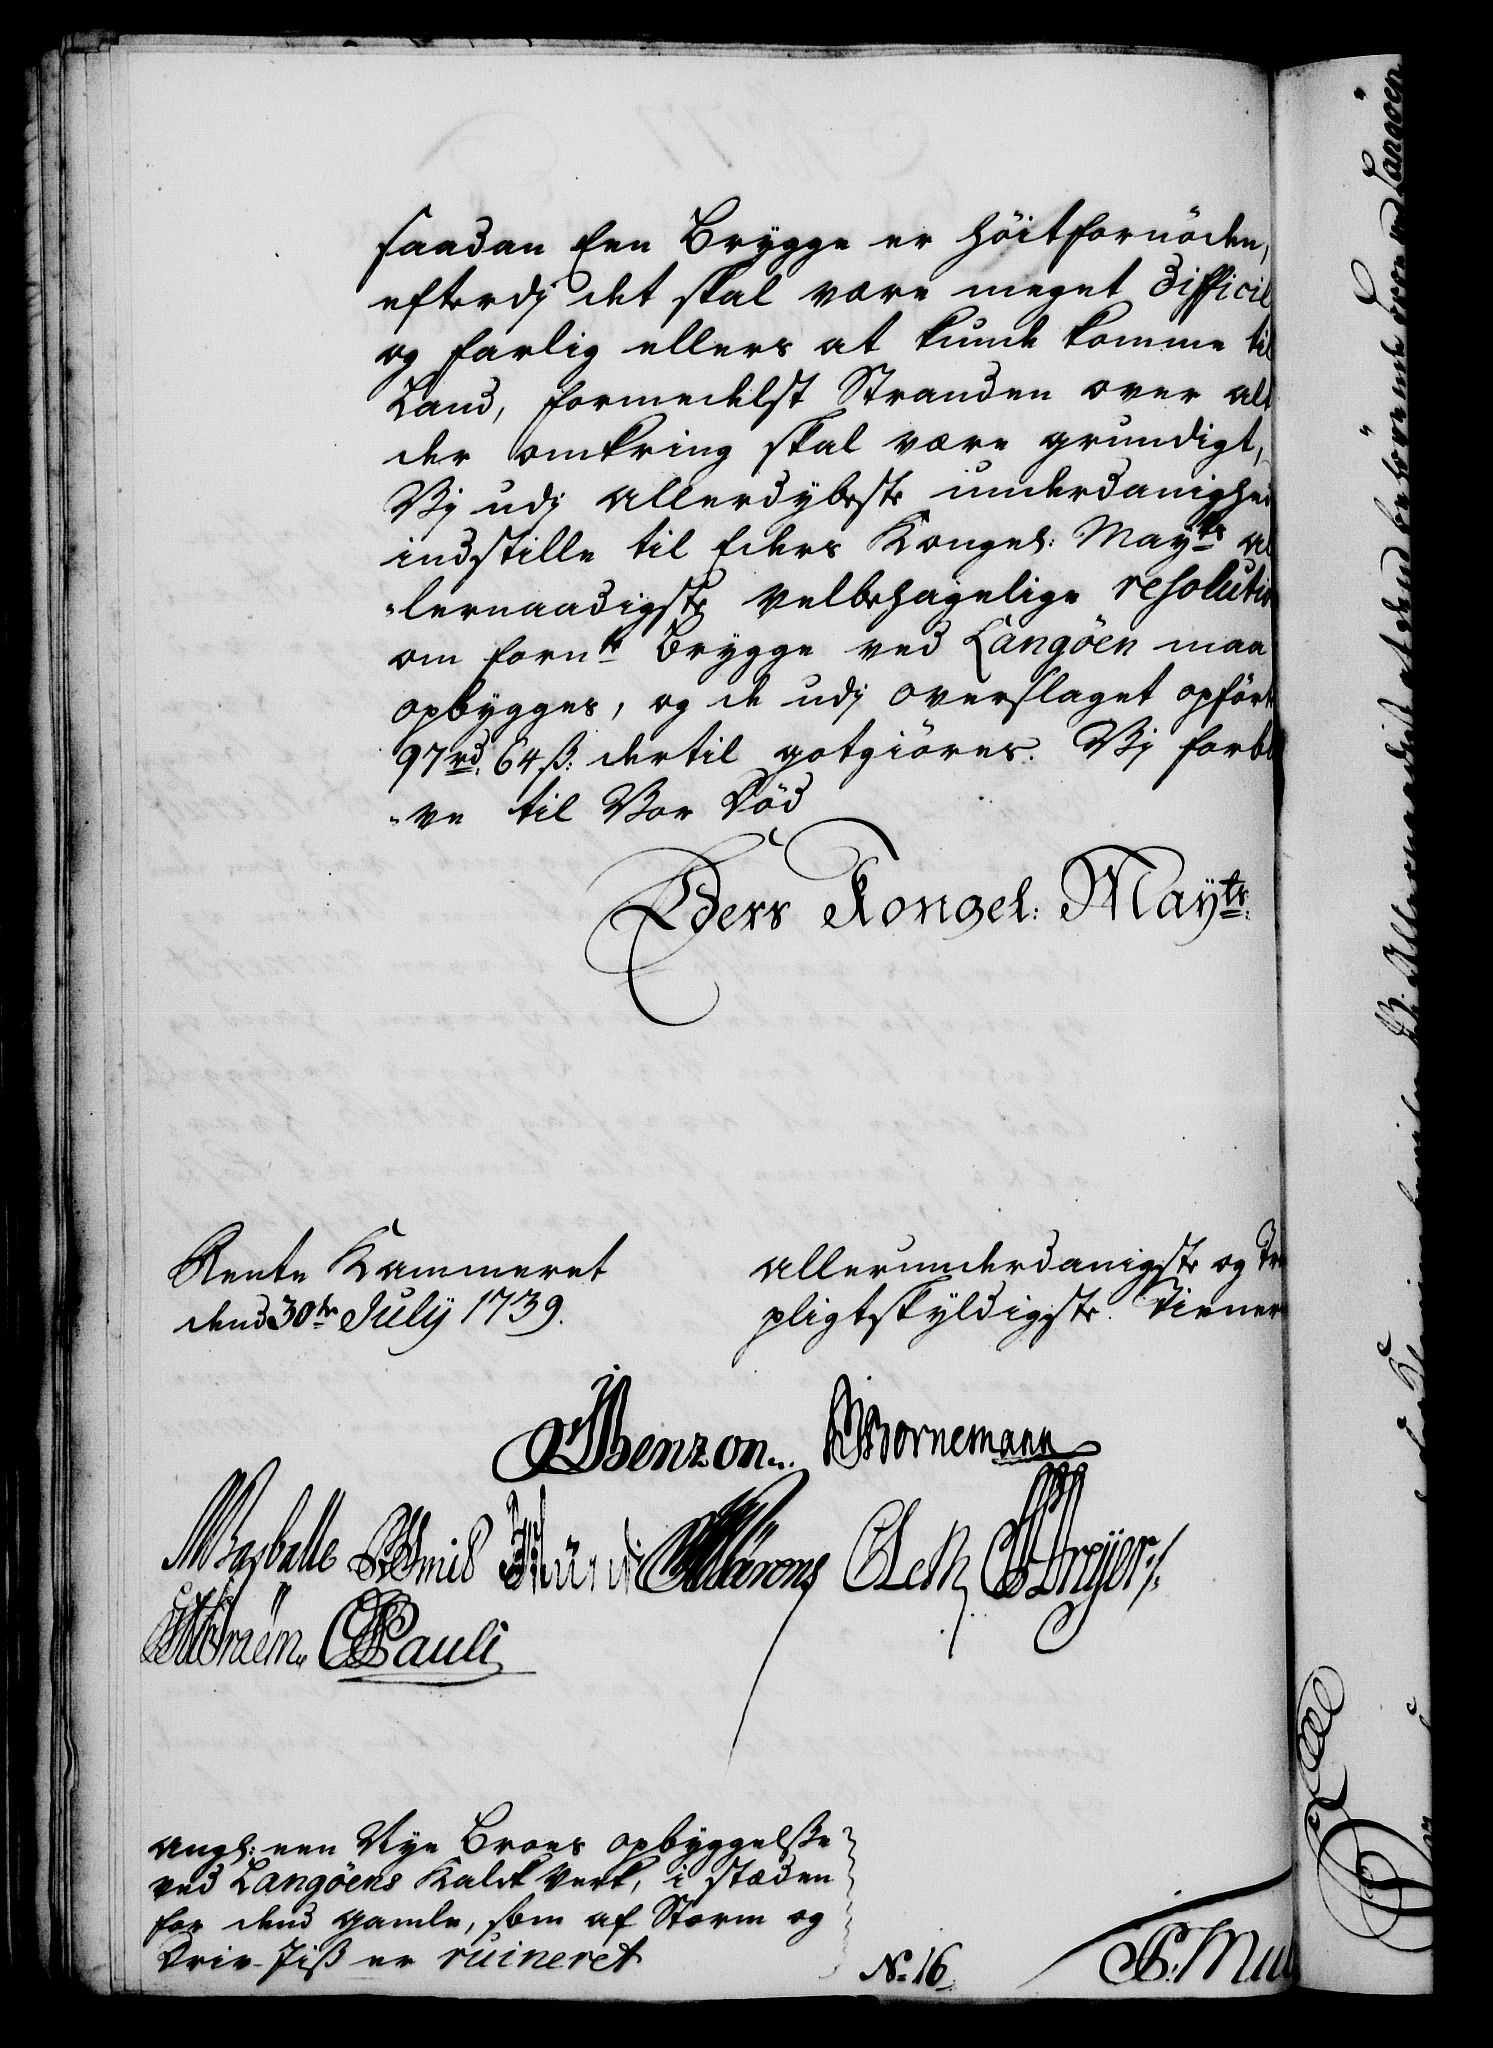 saadan Een Brygge er höit fornöden,
efterdj det skal være meget difficil
og farlig ellers at kunde komme til
Land, formedelst Stranden over alt
der omkring skal være grundigt,
Vj udj allerdybeste underdanighed
indstille til Eders Kongel: Mayts al
-lernaadigste velbehagelige resolution
om fornte Brygge ved Langöen maa
opbygges, og de udj overslaget opförte
97 rd: 64 ß: dertil gotgiöres. Vj forbli
-ve til Vor Död
Eders Kongel: Mayts:
Rente Kammeret
dend 30te Julij 1739.
allerunderdanigste og Tro
pligtskyldigste Tienere
Benzon. Bornemann
Dreÿer
Pauli
angl: een Nye Broes opbyggelse
ved Langöens Kalk verk, i stæden
for dend gamle, som af Storm og
Driv-Jiß er ruineret
No 16.